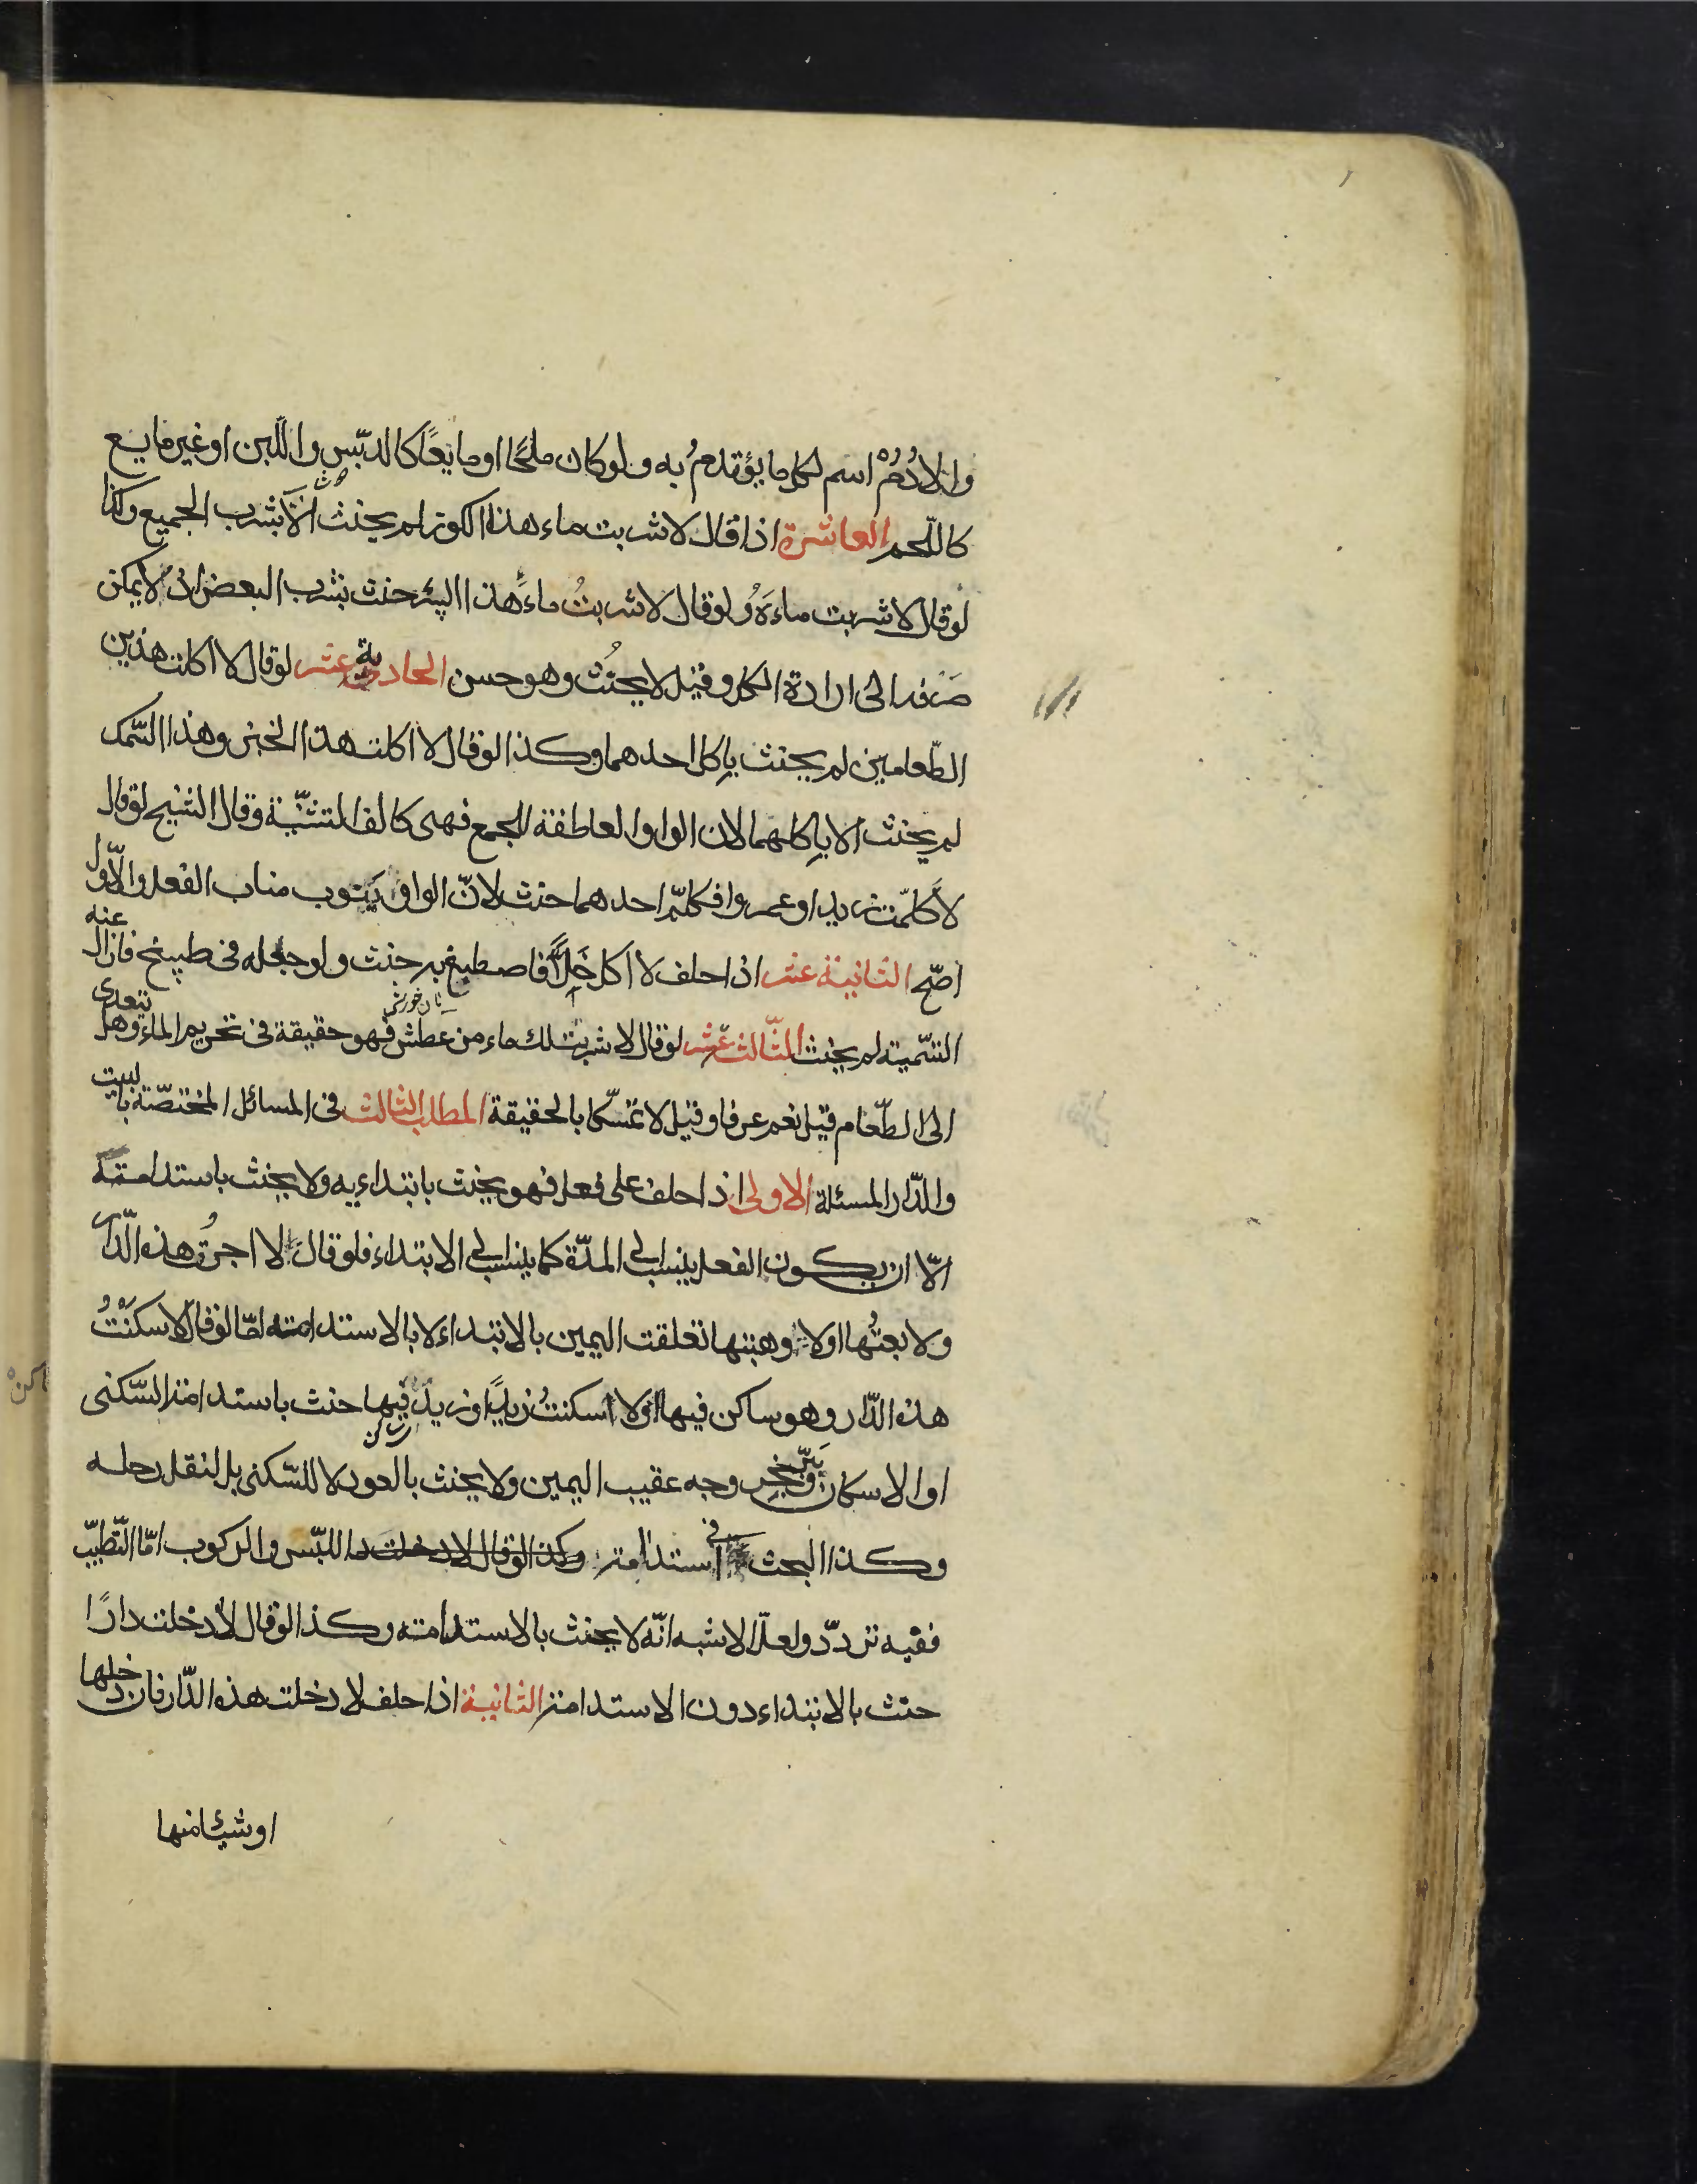 والادُمُ اسم لكل ما يؤتدمُ به ولو كان ملحًا او مايعًا كالدبّس واللّبن او غير مايع
كاللّحم العاشرة اذا قال لا شربت ماء هذا الكوز لم يحنث الّا بشرب الجميع وكذا
لو قال لا شربت ماءَهُ ولو قال لا شربتُ ماءَ هذا البئر حنث بشرب البعض اذ لا يمكن
صرفه الى ارادة الكل وقيل لا يحنث وهو حسن الحادية عشر لو قال لا اكلت هذين
الطّعامين لم يحنث باكل احدهما وكذا لو قال لا اكلت هذا الخبز وهذا السّمك
لم يحنث الا باكلهما لان الواو العاطفة للجمع فهى كالف التثنّية وقال الشيخ لو قال
لا كلّمت زيدا وعمروا فكلّم احدهما حنث لانّ الواو يَنوب مناب الفعل والاّول
اصّح الثانية عشر اذا حلف لا اكل خَلاًّ فاصطبغ به حنث ولو جعله فى طبيخ فازال عنه
نان خورش
التّسمية لم يحنث الثّالث عشر لو قال لا شربت لك ماء من عطش فهو حقيقة فى تحريم الماء وهل يتعدى
الى الطّعام قيل نعم عرفا وقيل لا تمسّكا بالحقيقة المطلب الثالث فى المسائل المختصّة بالبيت
والدّار المسئلة الاولى اذا حلف على فعل فهو يحنث بابتداءيه ولا يحنث باستدامته
الّا ان يكون الفعل ينسب الى المدّة كما ينسب الى الابتداء فلو قال لا اجرتُ هذه الّدار
ولا بعتُها اولا وهبتها تعلقت اليمين بالابتداء لا بالاستدامته امّا لو قال لا سكنْتُ
هذه الدّار وهو ساكن فيها اولا اسكنتُ زيدًا وزيد فيها حنث باستدامة السّكنى
ساكن
او الاسكان ويبّر بخروجه عقيب اليمين ولا يحنث بالعود لا للسّكنى بل لنقل رحله
وكذا البحث فى استدامة وكذا لو قال لا دخلت دا اللبّس والركوب امّا التّطيّب
ففيه تردّد ولعلّ الاشبه انّه لا يحنث بالاستدامته وكذا لو قال لا دخلت دارًا
حنث بالابتداء دون الاستدامة الثانية اذا حلف لا دخلت هذه الدّار فان دخلها
او شيئا منها